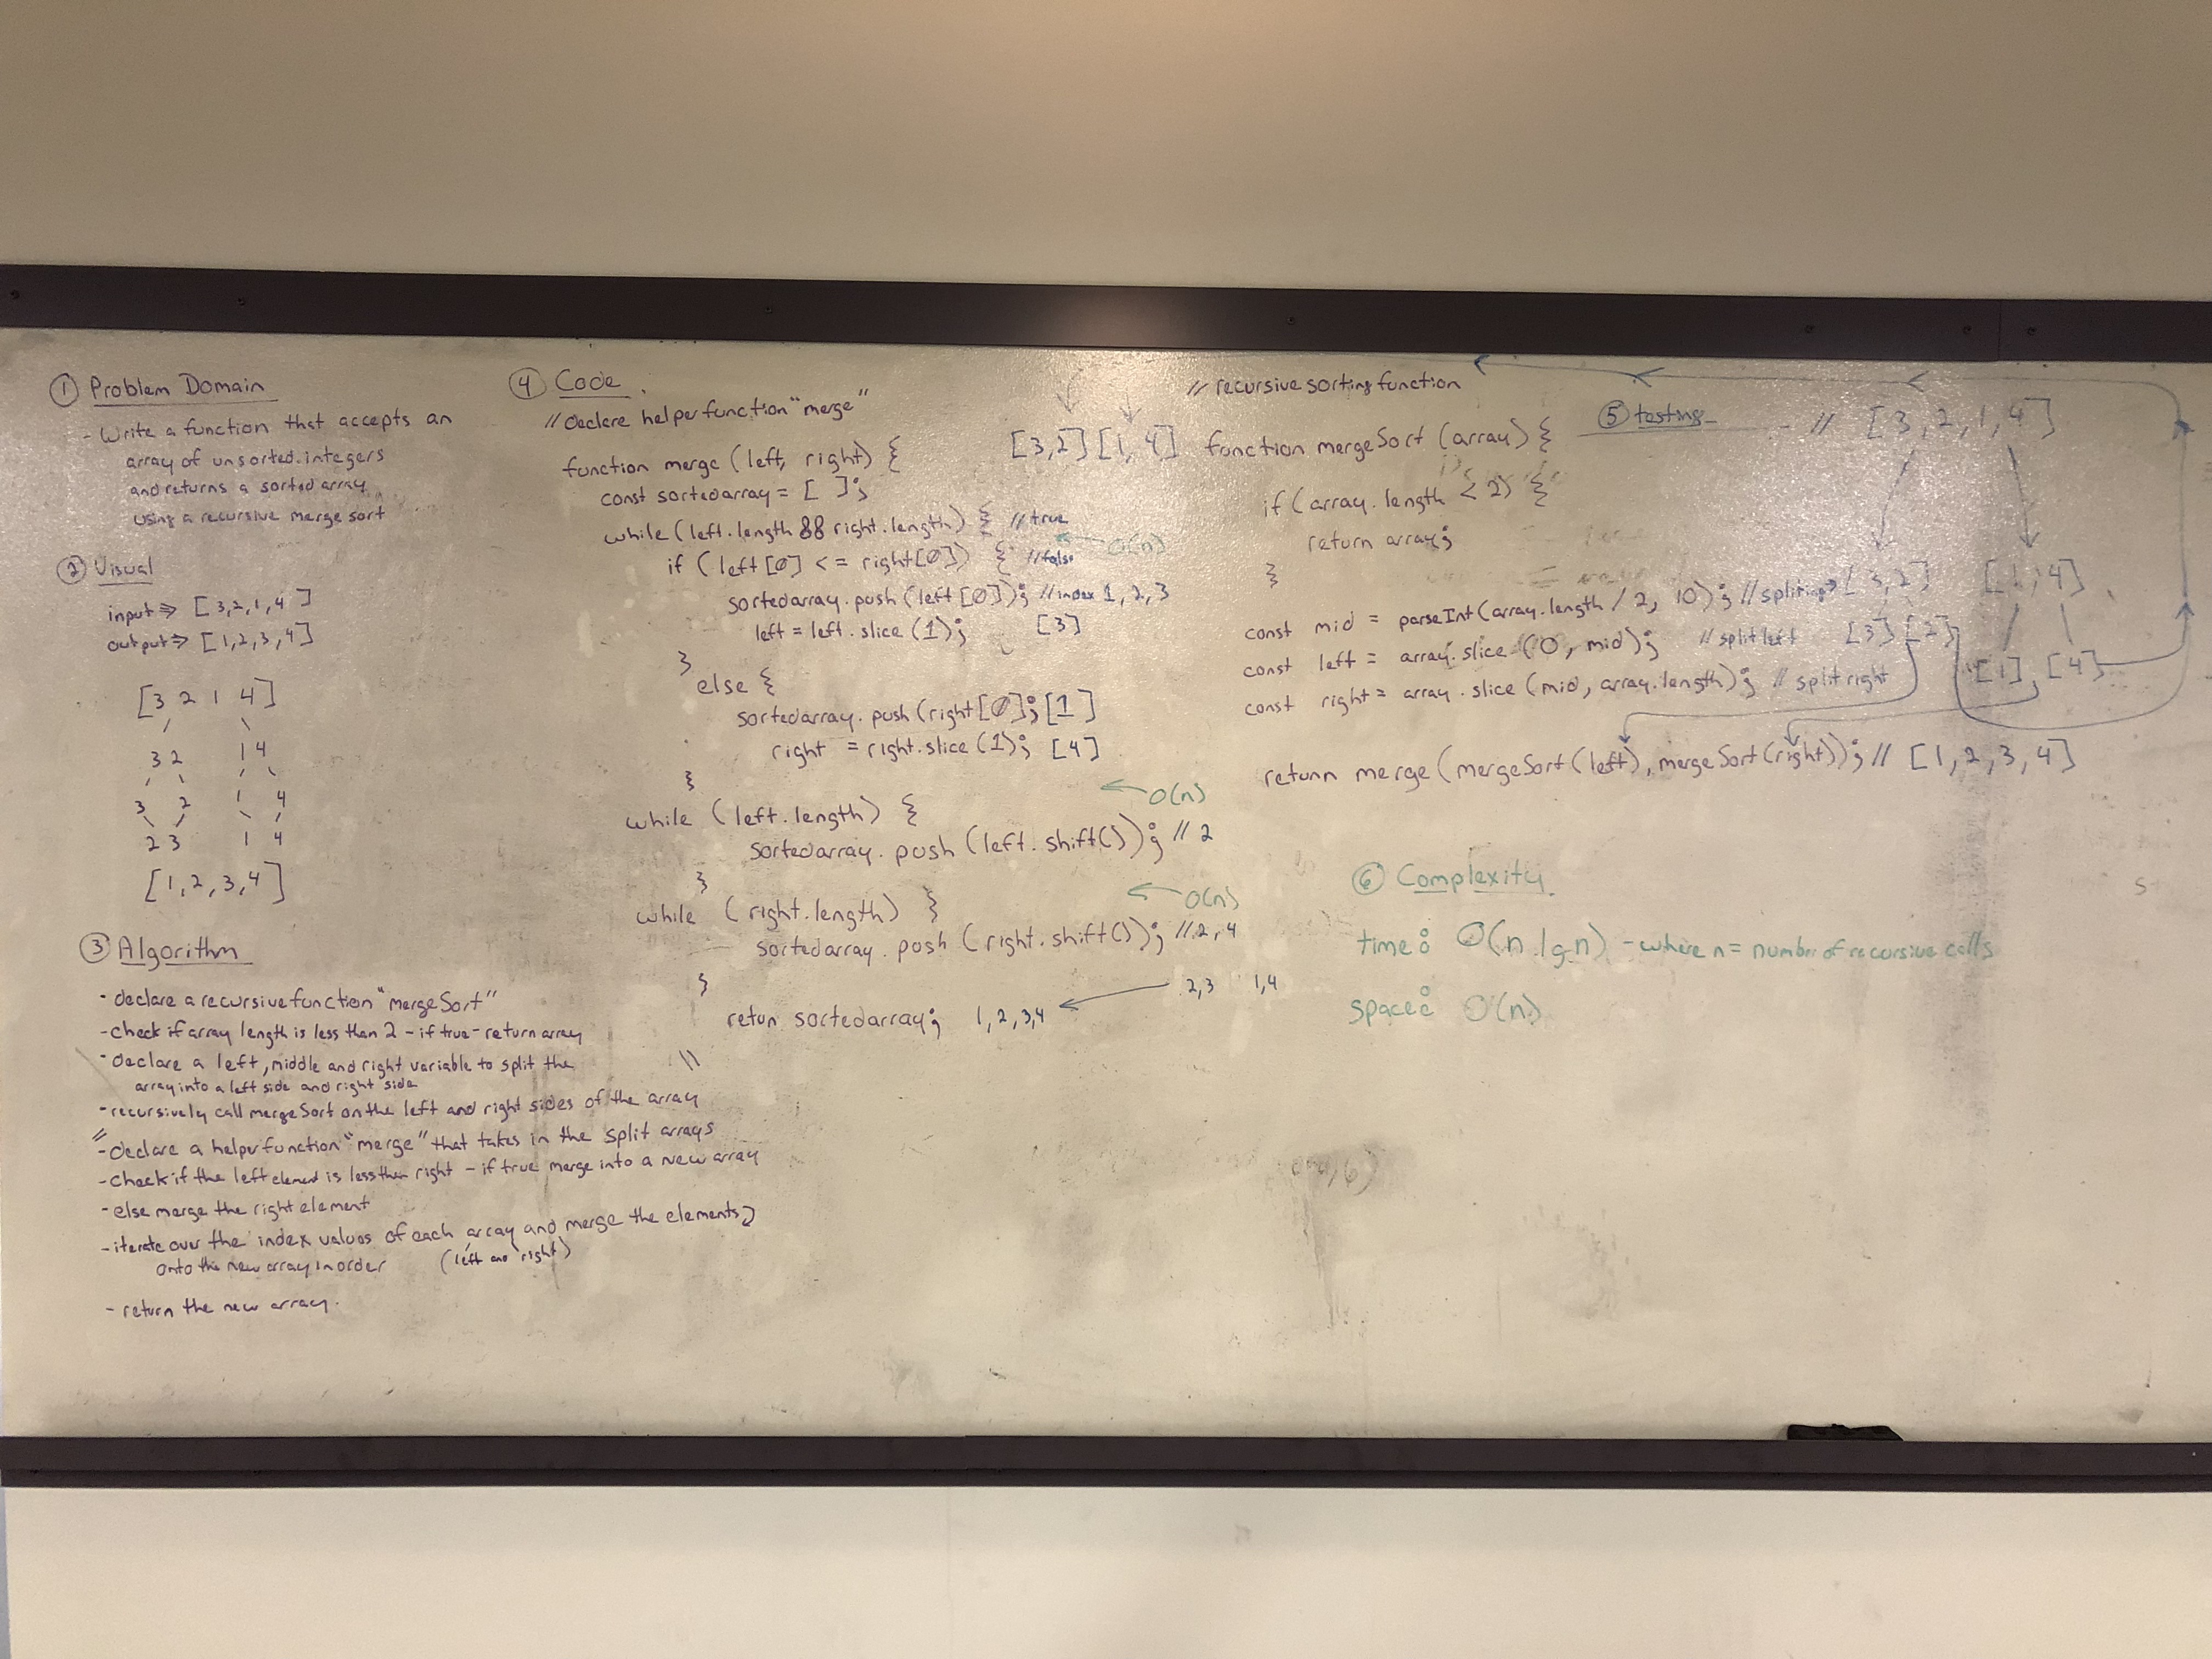 ① Problem Domain
- Write a function that accepts an
array of unsorted integers
and returns a sorted array
using a recursive merge sort
② Visual
input ⇒ [3,2,1,4]
output ⇒ [1,2,3,4]
[3 2 1 4]
3 2 1 4
3 2 1 4
2 3 1 4
[1,2,3,4]
③ Algorithm
- declare a recursive function "mergeSort"
- check if array length is less than 2 - if true - return array
- declare a left, middle and right variable to split the
array into a left side and right side
- recursively call mergeSort on the left and right sides of the array
- declare a helper function "merge" that takes in the split arrays
- check if the left element is less than right - if true merge into a new array
- else merge the right element
- iterate over the index values of each array and merge the elements
onto the new array in order (left and right)
- return the new array.
④ Code
// declare helper function "merge"
[3,2] [1,4]
function merge (left, right) {
const sortedarray = [ ];
while (left.length && right.length) { // true
← O(n)
if (left[0] <= right[0]) { // false
sortedarray.push(left[0]); // index 1, 2, 3
left = left.slice(1); [3]
}
else {
sortedarray.push(right[0]; [1]
right = right.slice(1); [4]
}
← O(n)
while (left.length) {
sortedarray.push(left.shift()); // 2
}
← O(n)
while (right.length) }
sortedarray.push(right.shift()); // 2, 4
}
2,3 1,4
retun sortedarray; 1,2,3,4
// recursive sorting function
function mergeSort (array) {
if (array.length < 2) {
return array;
}
const mid = parseInt(array.length / 2, 10); // spliting → [3,2] [1,4]
const left = array.slice(0, mid); // split left [3] [2] [1], [4]
const right = array.slice(mid, array.length); // split right
return merge(mergeSort(left), mergeSort(right)); // [1,2,3,4]
⑤ testing - // [3,2,1,4]
⑥ Complexity
time: O(n lg n) - where n = number of recursive calls
space: O(n)